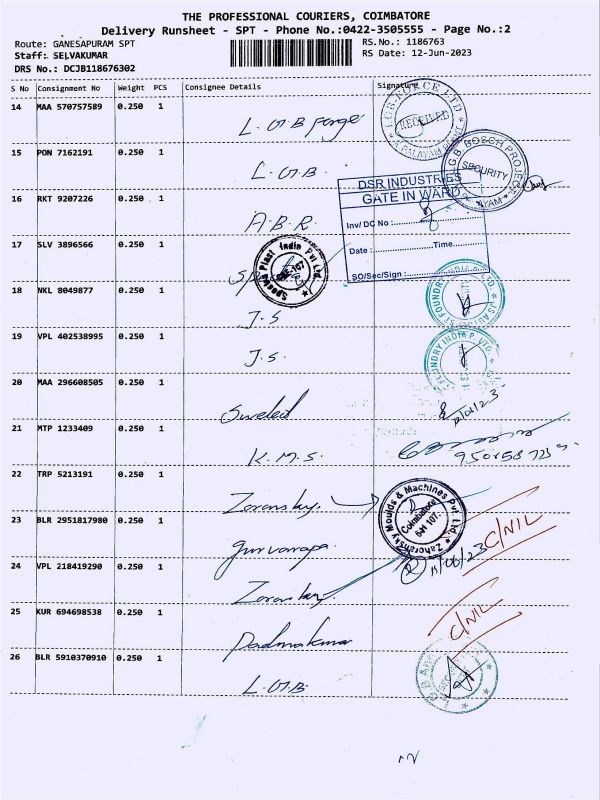 THE PROFESSIONAL COURIERS, COIMBATORE
Delivery Runsheet - SPT - Phone No.:0422-3505555 - Page No.:2
Route: GANESAPURAM SPT
RS.No.: 1186763
Staff: SELVAKUMAR
RS Date: 12-Jun-2023
DRS No.: DCJB118676302
S No Consignment No Weight PCS Consignee Details Signature
14 MAA 570757589 0.250 1 L.G.B forge
RECEIVED
15 PON 7162191 0.250 1 L.G.B.
L.G.B BOSCH PROJECT
SECURITY
16 RKT 9207226 0.250 1 A.B.R.
DSR INDUSTRIES
GATE IN WARD
Inv/ DC No :
Date : Time
SO/Sec/Sign :
17 SLV 3896566 0.250 1
Speed Plast India Pvt Ltd.
18 NKL 8049877 0.250 1 J.S
19 VPL 402538995 0.250 1 J.S.
FOUNDRY INDIA P. LTD
20 MAA 296608505 0.250 1
21 MTP 1233409 0.250 1 K.M.S.
22 TRP 5213191 0.250 1
Zahoransky Moulds & Machines Pvt. Ltd.
Coimbatore
641 107.
23 BLR 2951817980 0.250 1
C/NIL
24 VPL 218419290 0.250 1
25 KUR 694698538 0.250 1 Padmakumar
C/NIL
26 BLR 5910370910 0.250 1 L.G.B.